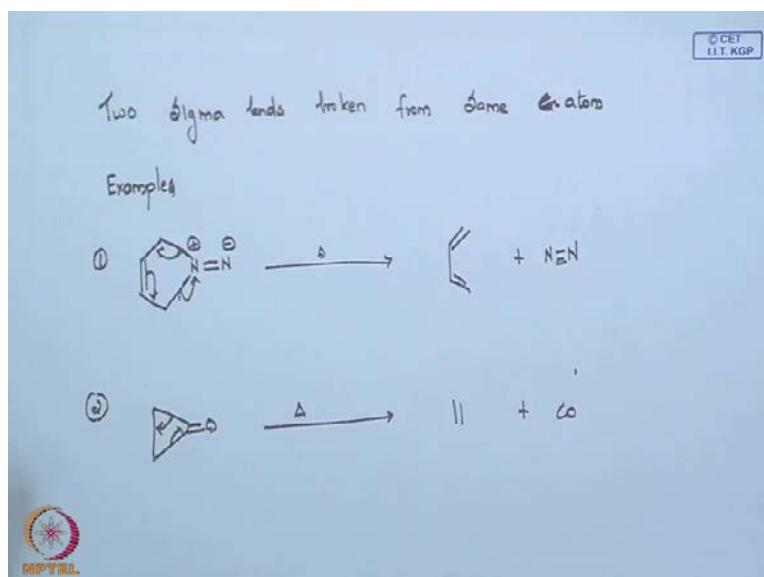 © CET
I.I.T. KGP
Two Sigma bonds broken from Same atom
Examples
① ⊕ ⊖ N=N Δ + N≡N
② =O Δ || + CO
NPTEL